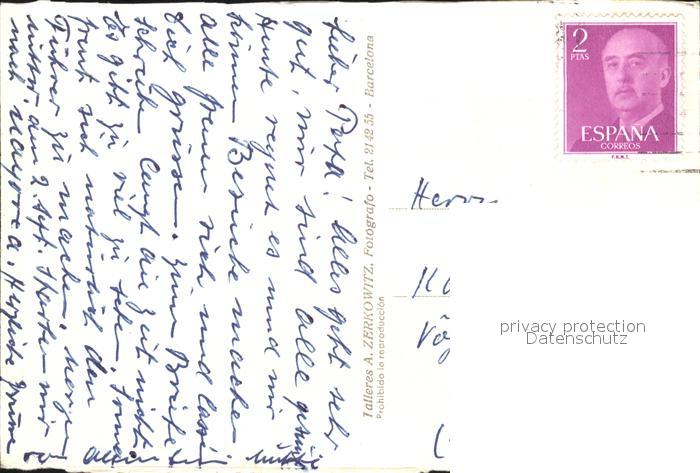 Lieber Papa! Alles geht sehr
gut, wir sind alle gesund
Heute regnet es und wir
können Besuche machen
alle freuen sich und lassen
Dich grüssen. Zum Briefe
schreiben langt die Zeit nicht
Es gibt zu viel zu sehen.
freut sich natürlich den
Führer zu machen. Morgen
mittag, am 2. Sept. starten wir
nach Mallorca. Herzliche Grüsse
von allen
Mutti
Talleres A. ZERKOWITZ, Fotógrafo - Tel. 21 42 55 - Barcelona
Prohibida la reproducción
2
PTAS
ESPAÑA
CORREOS
F.N.M.T.
Herrn
privacy protection
Datenschutz